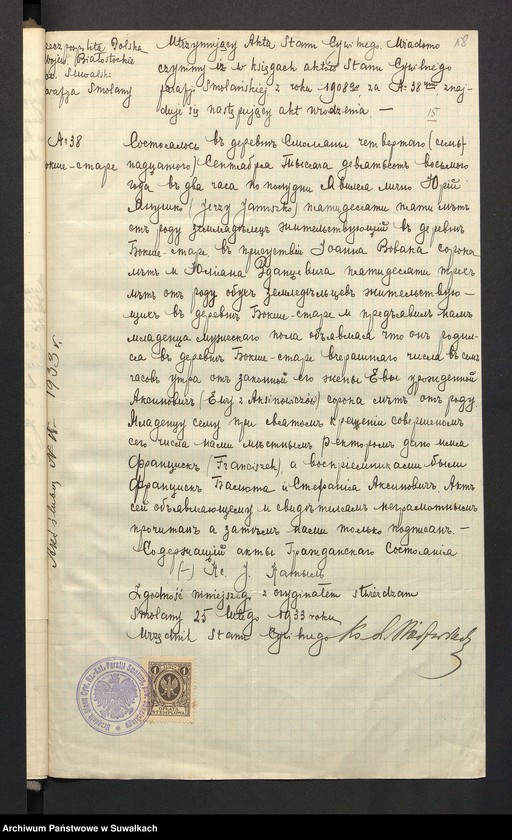 Rzeczpospolita Polska
Wojew. Białostockie
Suwalski
Parafja Smolany
18
Utrzymujący Akta Stanu Cywilnego. Wiadomo
czynimy iż w księgach aktów Stanu Cywilnego
parafji Smolańskiej z roku 1908go za № 38 znaj-
duje się następujący akt urodzenia —
15
№ 38
Бокше-старе
Состоялось въ деревнѣ Смоляны четвертаго (семь-
надцатаго) Сентября тысяча девятьсотъ восьмого
года въ два часа по полудни. Явился лично Юрій
Янушко (Jerzy Januszko) пятидесяти пяти лѣтъ
отъ роду земледѣлецъ жительствующій въ деревнѣ
Бокше-старе въ присутствіи Іоанна Вована сорока
лѣтъ и Юліана Зданцевича пятидесяти трехъ
лѣтъ отъ роду обухъ земледѣльцевъ жительствую-
щихъ въ деревнѣ Бокше-старе и предъявилъ намъ
младенца мужескаго пола объявляя что онъ родил-
ся въ деревнѣ Бокше-старе вчерашняго числа въ семь
часовъ утра отъ законной его жены Евы урожденной
Аксиновичъ (Ewy z Aksinowiczów) сорока лѣтъ отъ роду.
Младенцу сему при святомъ крещеніи совершеномъ
сего числа нами мѣстнымъ Ректоромъ дано имя
Францискъ (Franciszek), а воспріемниками были
Францискъ Балюта и Стефанія Аксиновичъ. Актъ
сей объявляющему и свидѣтелямъ неграмотнымъ
прочитанъ а затѣмъ нами только подписанъ. —
Содержащій акты Гражданскаго Состоянія
(—) Кс. J.
Zgodność niniejszego z oryginałem stwierdzam
Smolany 25 lutego 1933 roku
Urzędnik Stanu Cywilnego Ks.
1933 r.
1
OPŁATA
STEMPLOWA
Archiwum Państwowe w Suwałkach